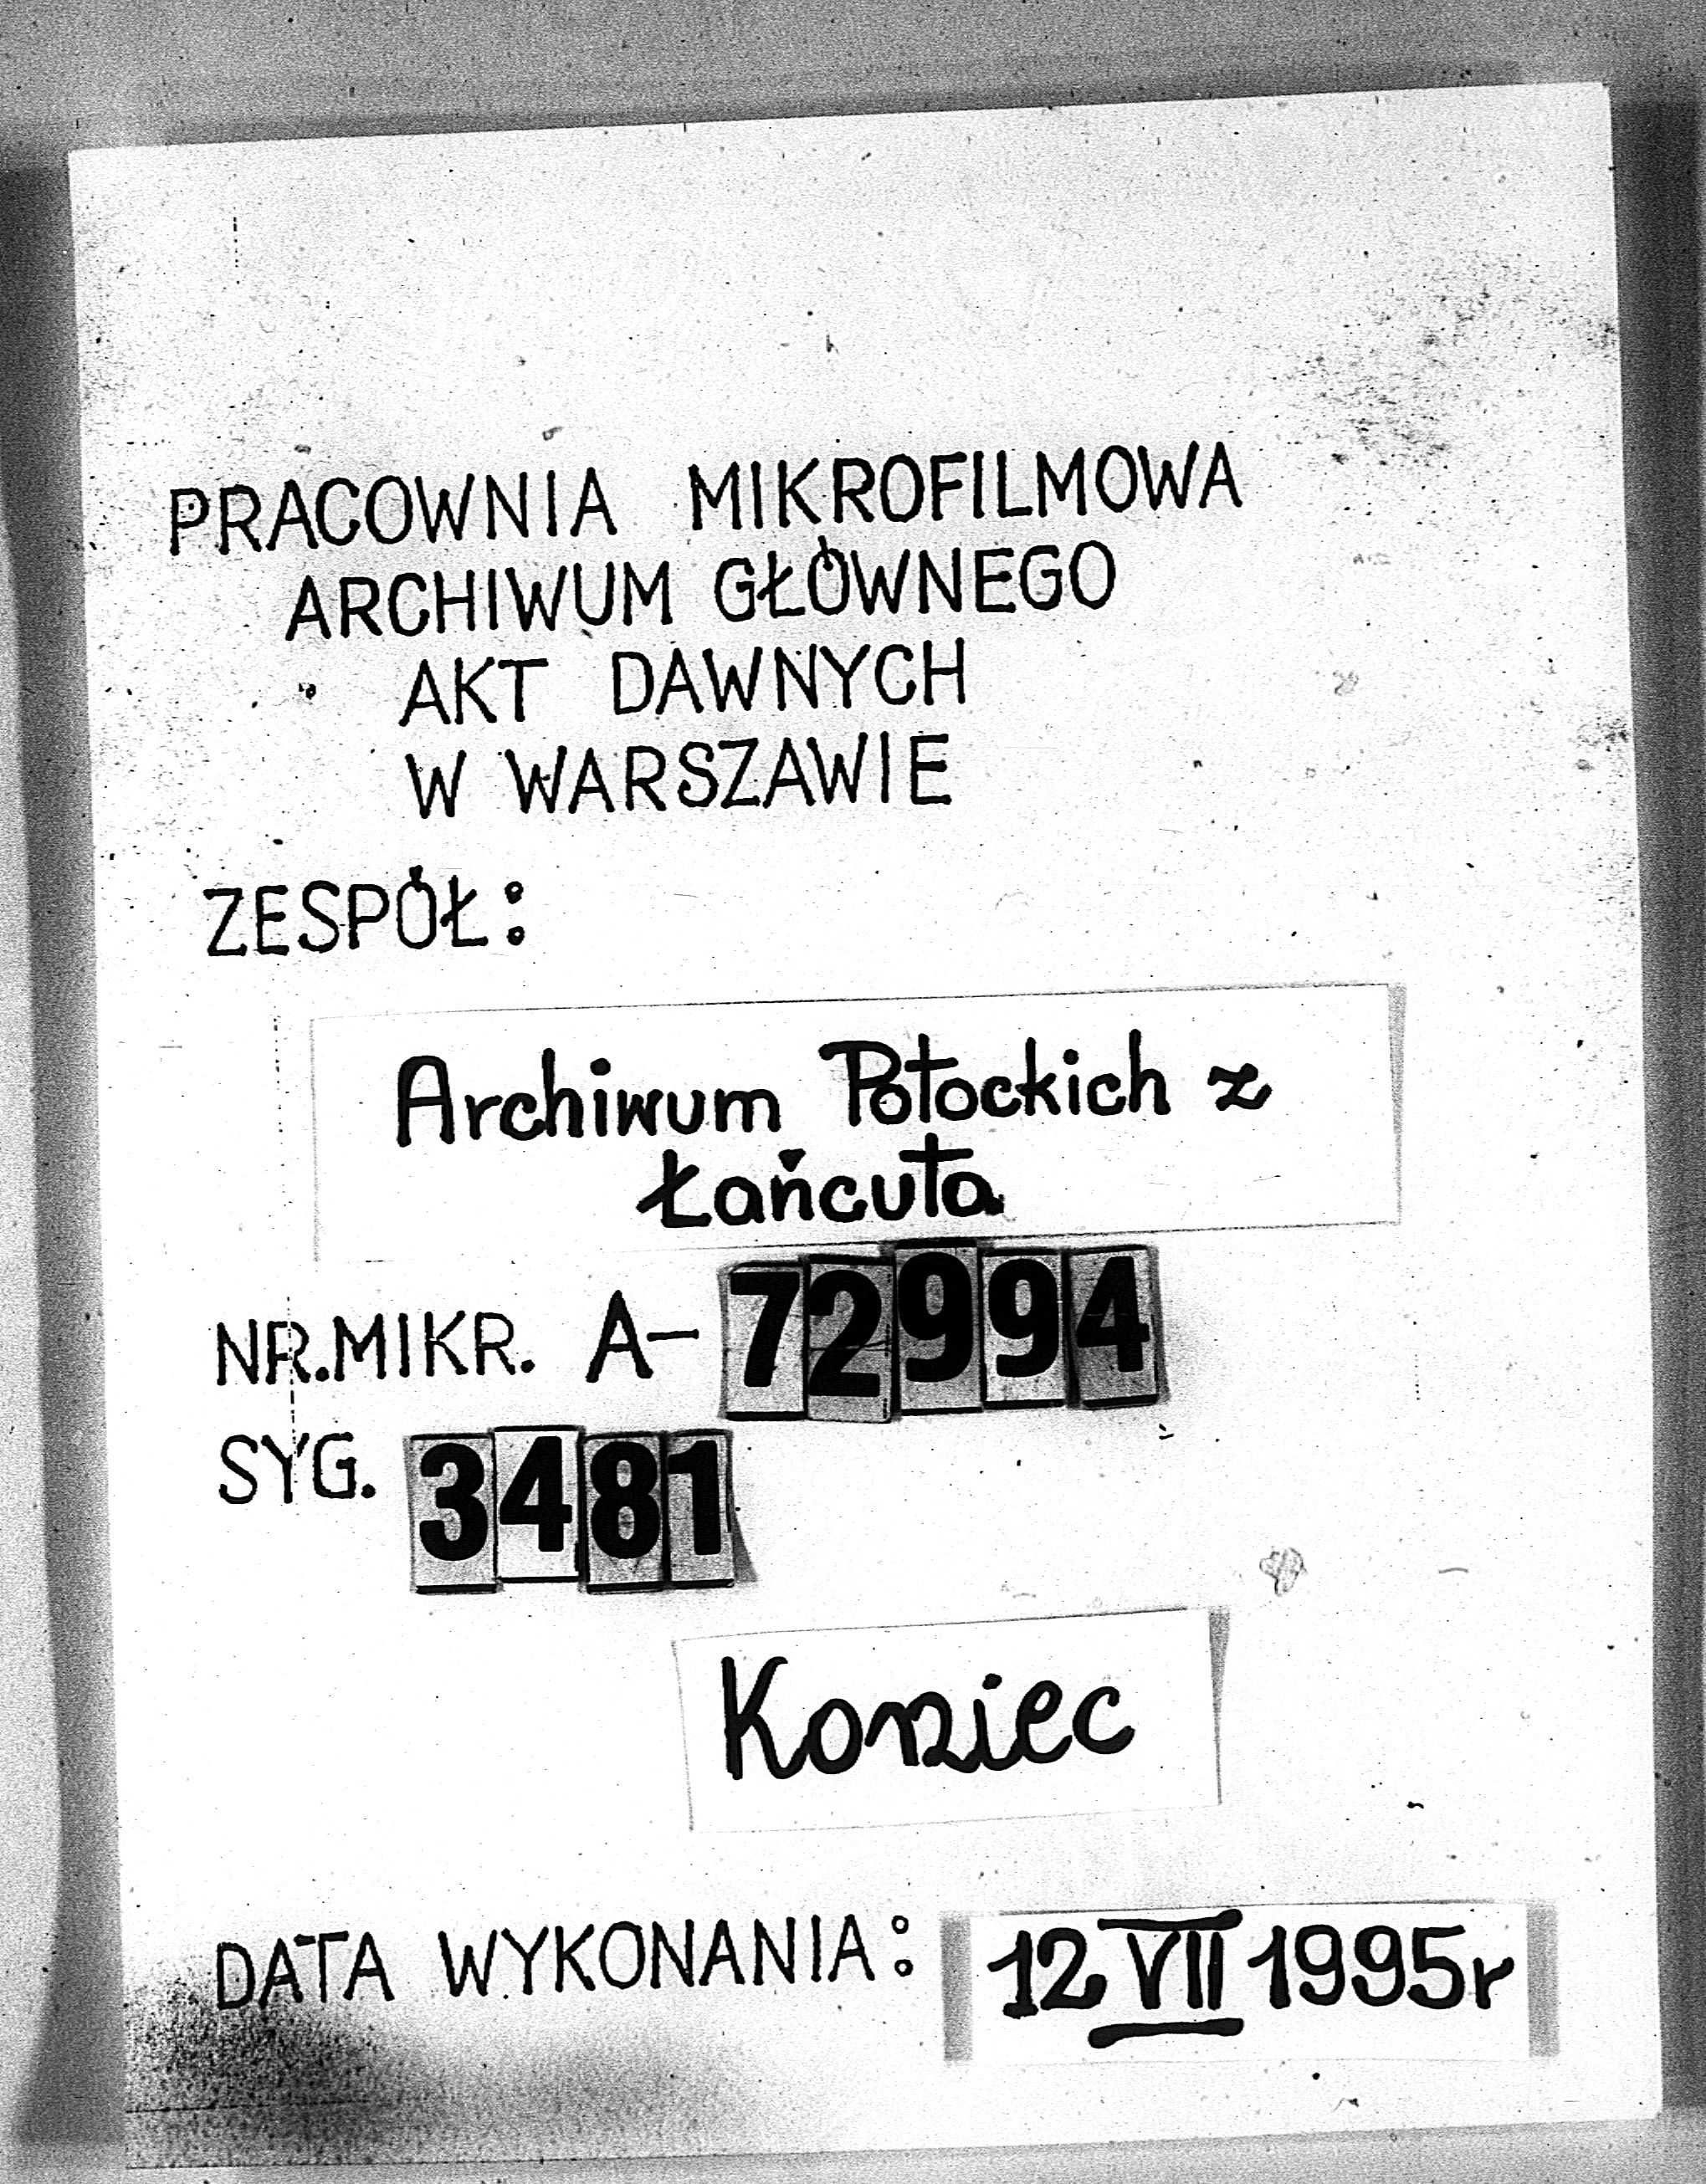 PRACOWNIA MIKROFILMOWA
ARCHIWUM GŁÓWNEGO
AKT DAWNYCH
W WARSZAWIE
ZESPÓŁ:
Archiwum Potockich z
Łańcuta
NR.MIKR. A-72994
SYG. 3481
Koniec
DATA WYKONANIA: 12 VII 1995r